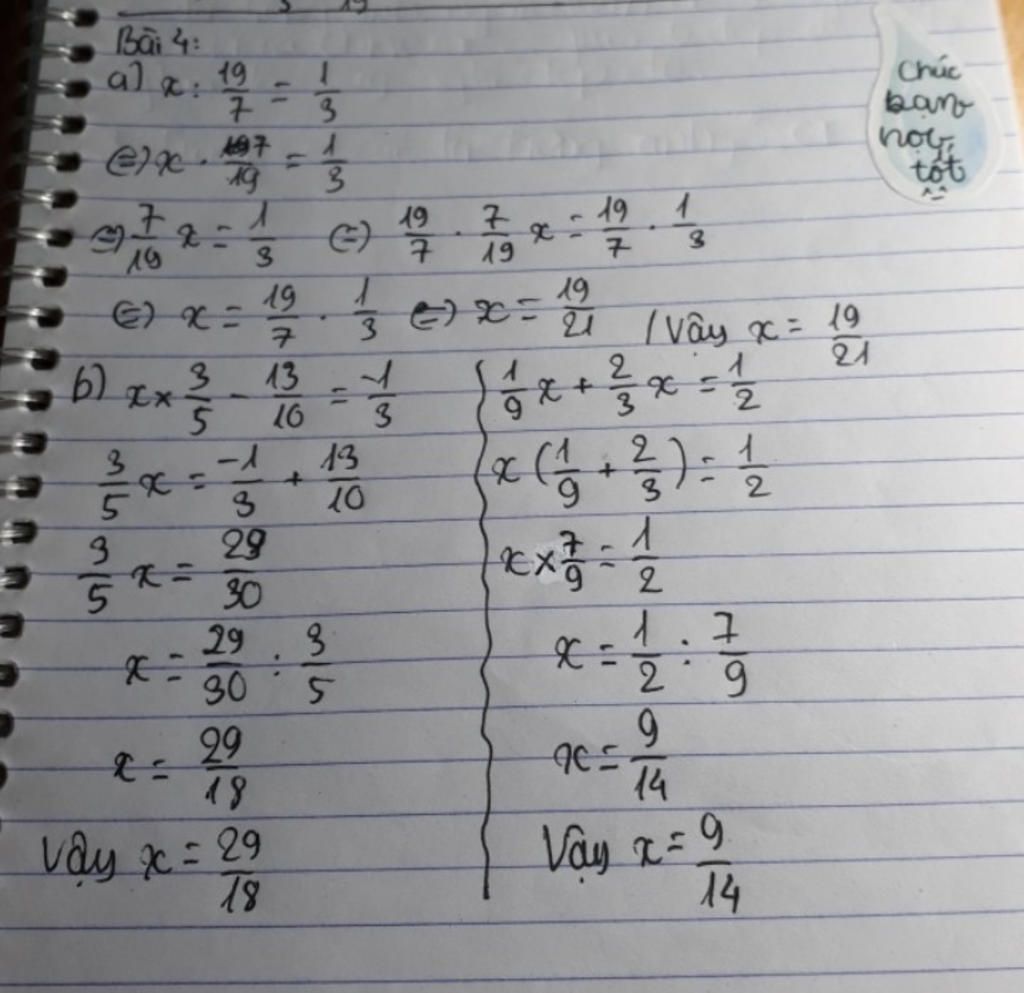 Bài 4:
a) x : 19/7 = 1/3
(=) x . 7/19 = 1/3
(=) 7/19 x = 1/3 (=) 19/7 . 7/19 x = 19/7 . 1/3
(=) x = 19/7 . 1/3 (=) x = 19/21 / Vây x = 19/21
b) x × 3/5 - 13/10 = -1/3
3/5 x = -1/3 + 13/10
3/5 x = 29/30
x = 29/30 : 3/5
x = 29/18
Vậy x = 29/18
1/9 x + 2/3 x = 1/2
x (1/9 + 2/3) = 1/2
x × 7/9 = 1/2
x = 1/2 : 7/9
x = 9/14
Vậy x = 9/14
Chúc
bạn
học
tốt
^^